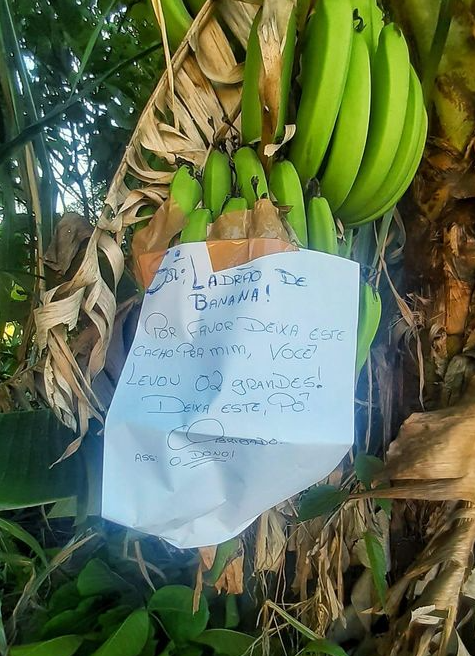 Sr: LADRÃO DE
BANANA!
POR FAVOR DEIXA ESTE
CACHO PRA MIM, VOCÊ
LEVOU 02 GRANDES!
DEIXA ESTE, PÔ!
OBRIGADO
ASS: O DONO!